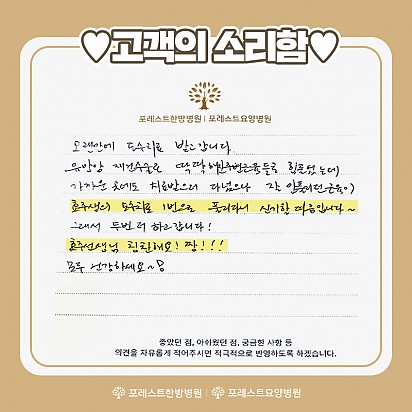 ♥고객의 소리함♥
포레스트한방병원 | 포레스트요양병원
오랜만에 도수치료 받고갑니다.
유방암 재건수술로 딱딱해진 주변근육들로 힘들었는데
가까운 곳에도 치료받으러 다녔으나 잘 안풀리던근육이
효주쌤의 도수치료 1번으로 풀리다니 신기할 따름입니다~
그래서 두번 더 하고갑니다!
효주선생님 친절해요! 짱!!!
모두 건강하세요~
좋았던 점, 아쉬웠던 점, 궁금한 사항 등
의견을 자유롭게 적어주시면 적극적으로 반영하도록 하겠습니다.
포레스트한방병원 | 포레스트요양병원